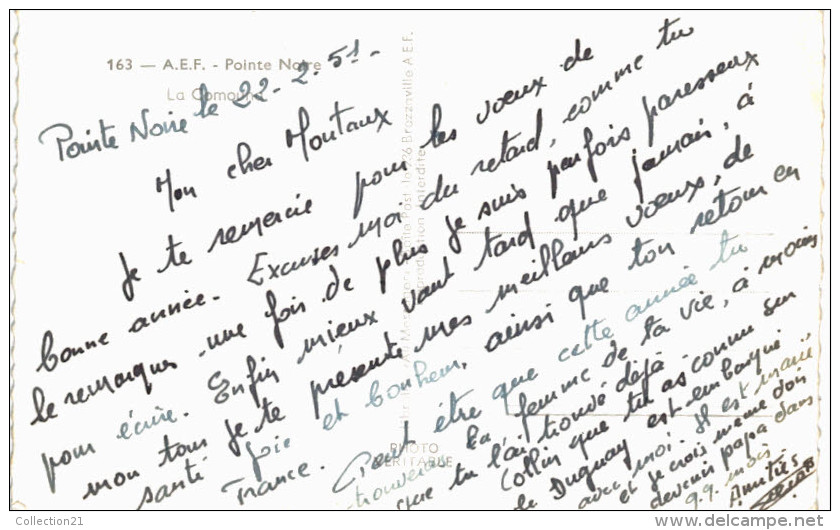 163 — A.E.F. - Pointe Noire
Pointe Noire le 22-2-51-
Mon cher Montaux
Je te remercie pour tes voeux de
bonne année. Excuses moi du retard, comme tu
le remarques une fois de plus je suis parfois paresseux
pour écrire. Enfin mieux vaut tard que jamais, à
mon tour je te présente mes meilleurs voeux, de
santé Joie et bonheur, ainsi que ton retour en
France. Peut être que cette année tu
trouveras la femme de ta vie, à moins
que tu l'ai trouvé déjà.
Collin que tu as connu sur
le Duguay est embarqué
avec moi. Il est marié
et je crois même doit
devenir papa dans
q.q. mois
Amitiés
PHOTO
VERITABLE
Collection21
delcampe.net